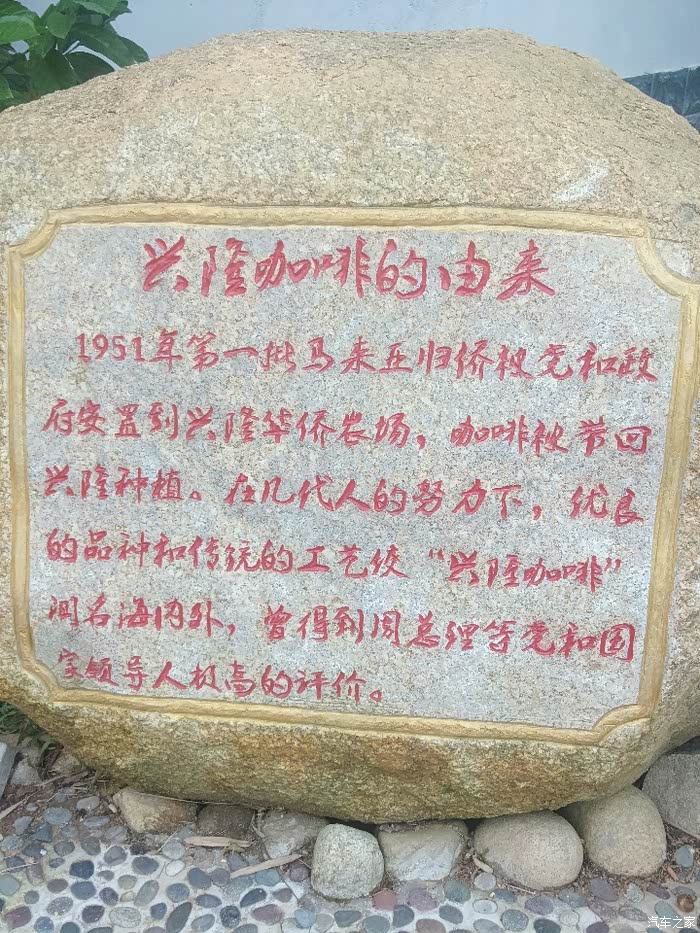 兴隆咖啡的由来
1951年第一批马来亚归侨被党和政
府安置到兴隆华侨农场，咖啡被带回
兴隆种植。在几代人的努力下，优良
的品种和传统的工艺使“兴隆咖啡”
闻名海内外，曾得到周总理等党和国
家领导人极高的评价。
汽车之家